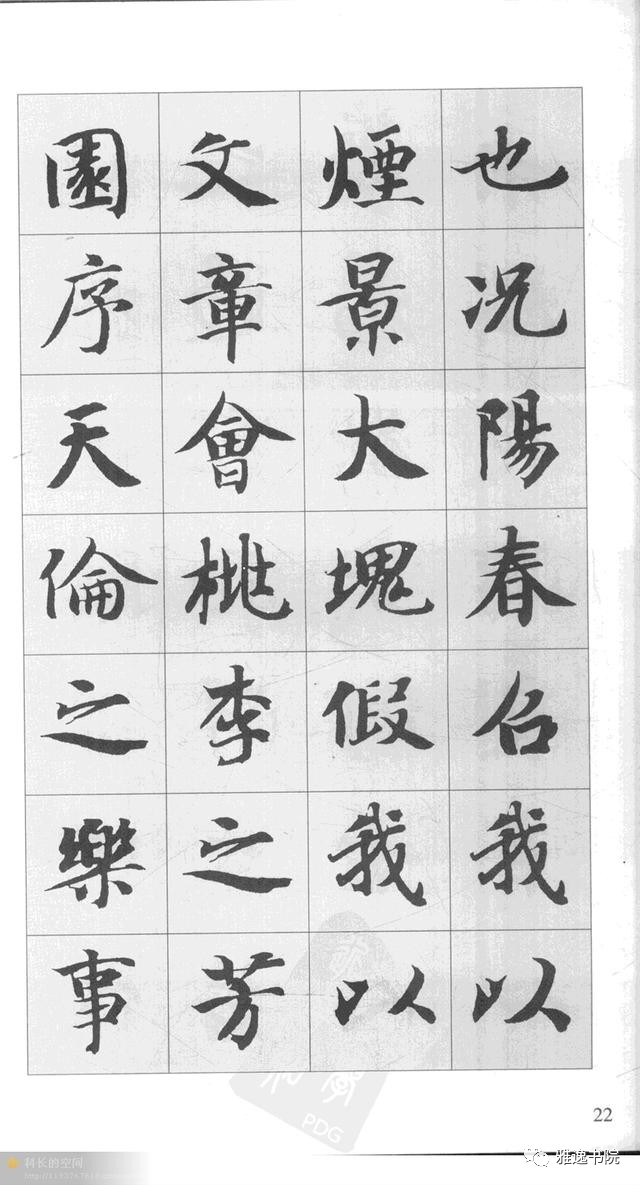 也况陽春召我以
煙景大塊假我以
文章會桃李之芳
園序天倫之樂事
22
PDG
科长的空间
雅逸书院